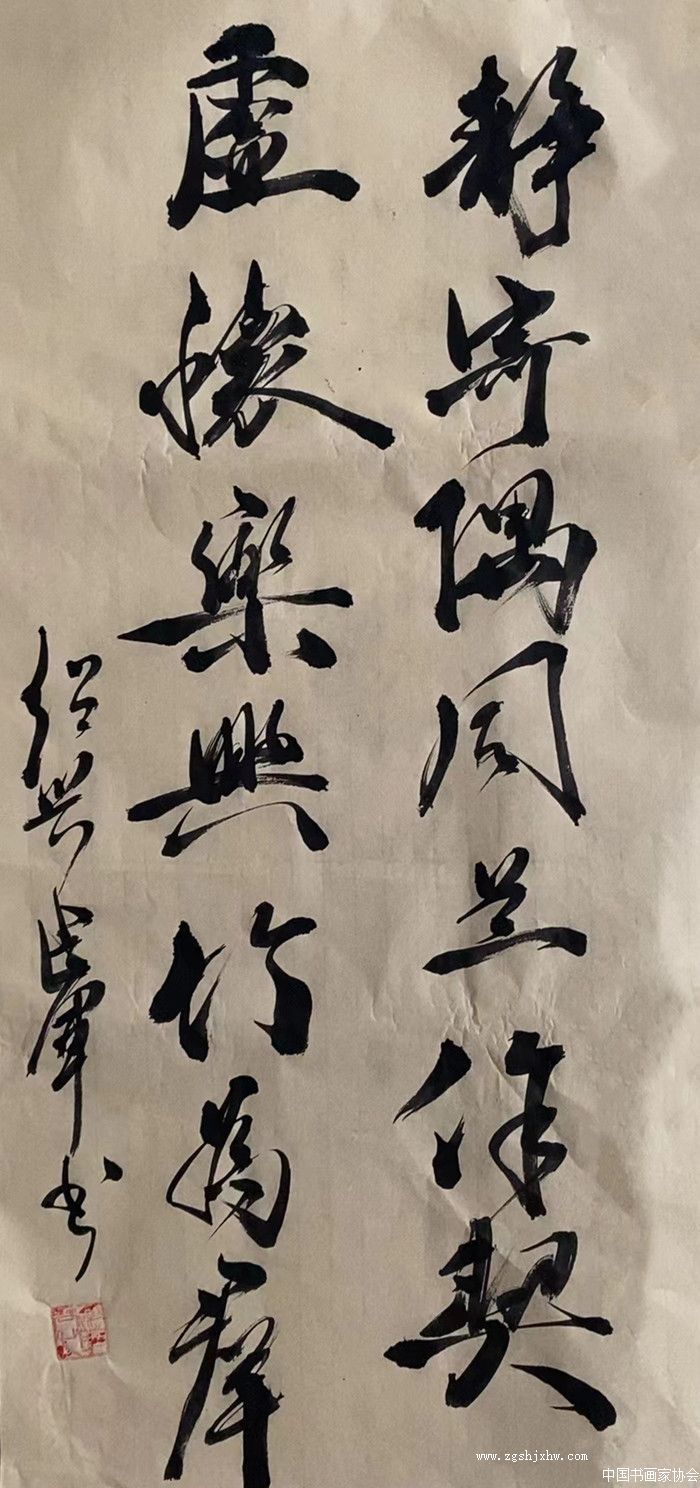 静寄隅同兰作契
虚懷樂與竹為群
绍兴 书
www.zgshjxhw.com
中国书画家协会